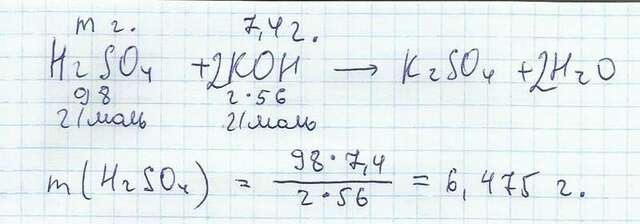 m г. 7,4 г.
H₂SO₄ + 2KOH → K₂SO₄ + 2H₂O
98 2·56
г/моль г/моль
m(H₂SO₄) = 98·7,4 / 2·56 = 6,475 г.